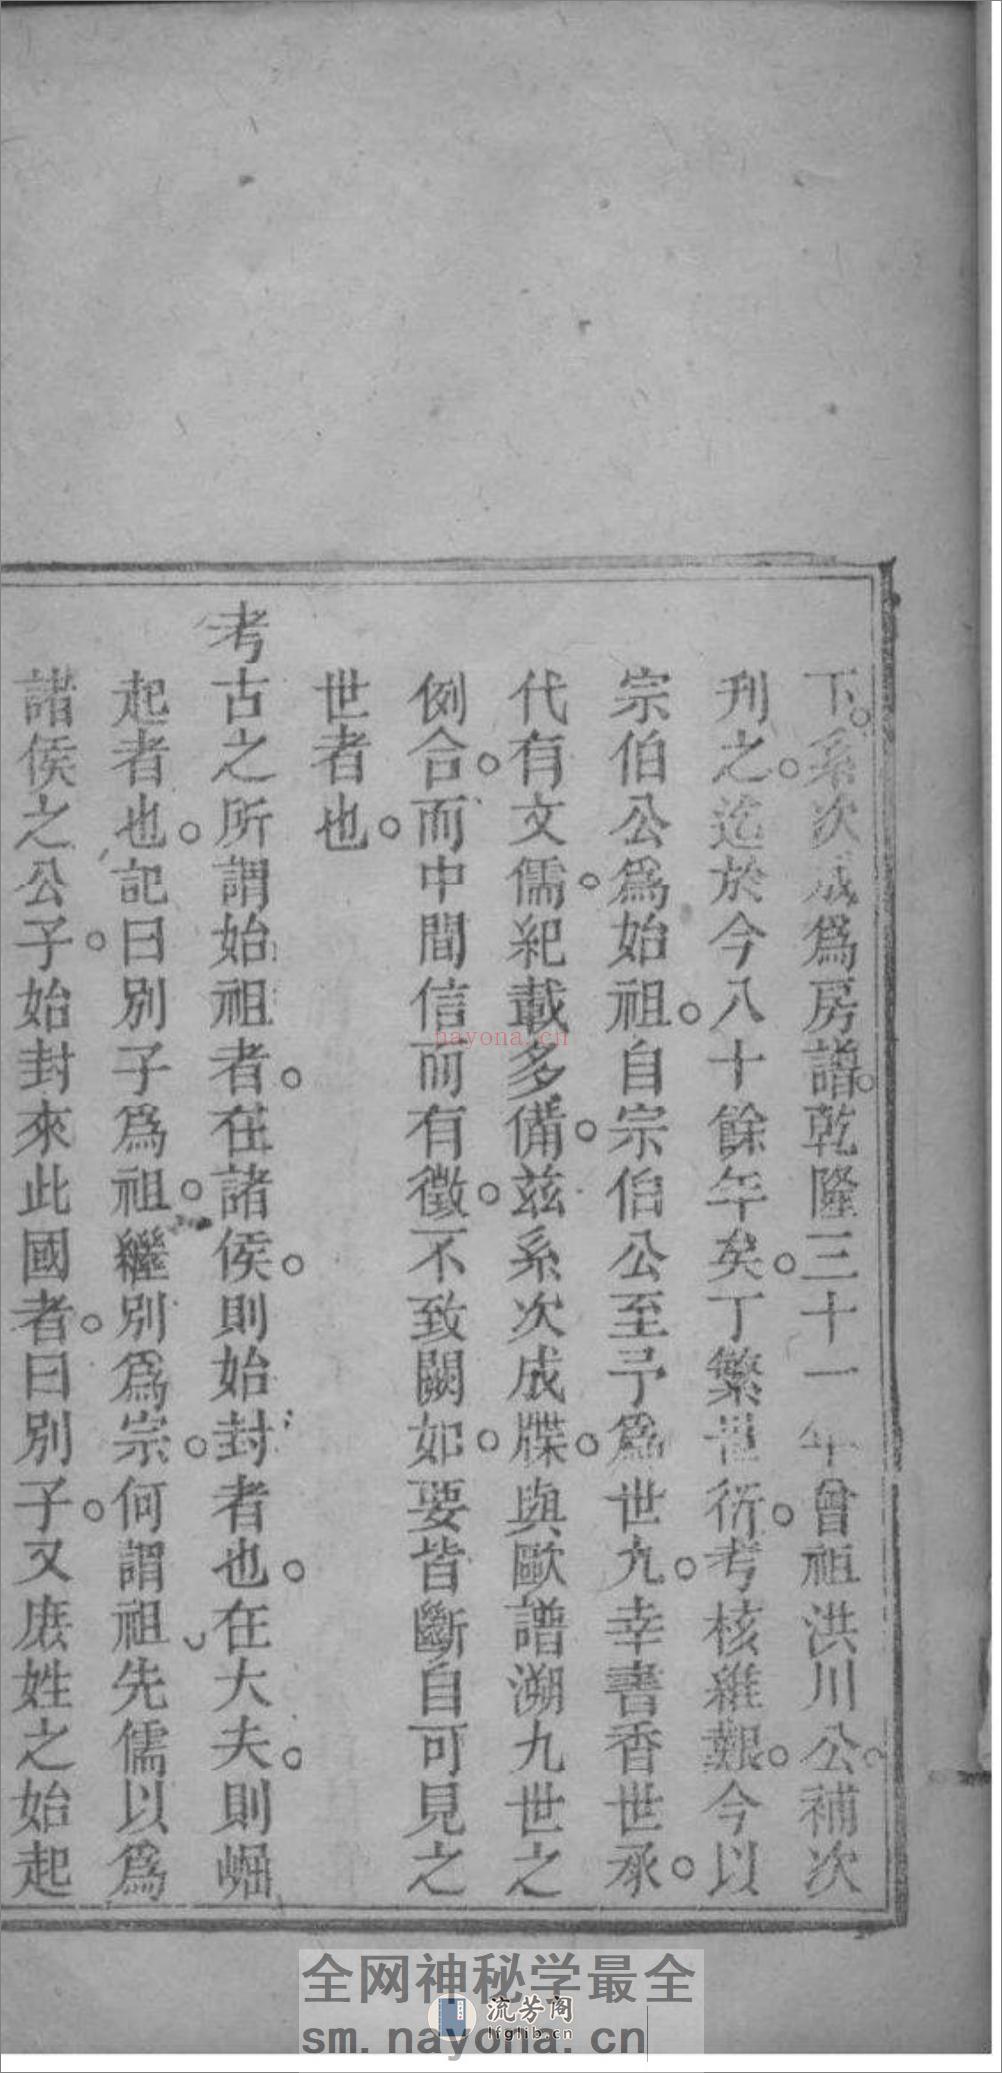 下。系次成爲房譜。乾隆三十一年曾祖洪川公。補次
刋之。迄於今八十餘年矣。丁繁世衍。考核維艱。今以
宗伯公爲始祖。自宗伯公至予爲世九。幸書香世承。
代有文儒。紀載多備。茲系次成牒。與歐譜溯九世之
例合。而中間信而有徵。不致闕如。要皆斷自可見之
世者也。
考古之所謂始祖者。在諸侯。則始封者也。在大夫。則崛
起者也。記曰別子爲祖。繼別爲宗。何謂祖先儒以爲
諸侯之公子。始封來此國者。曰別子。又庶姓之始起
nayona.cn
全网神秘学最全
流芳阁
lfglib.cn
sm.nayona.cn